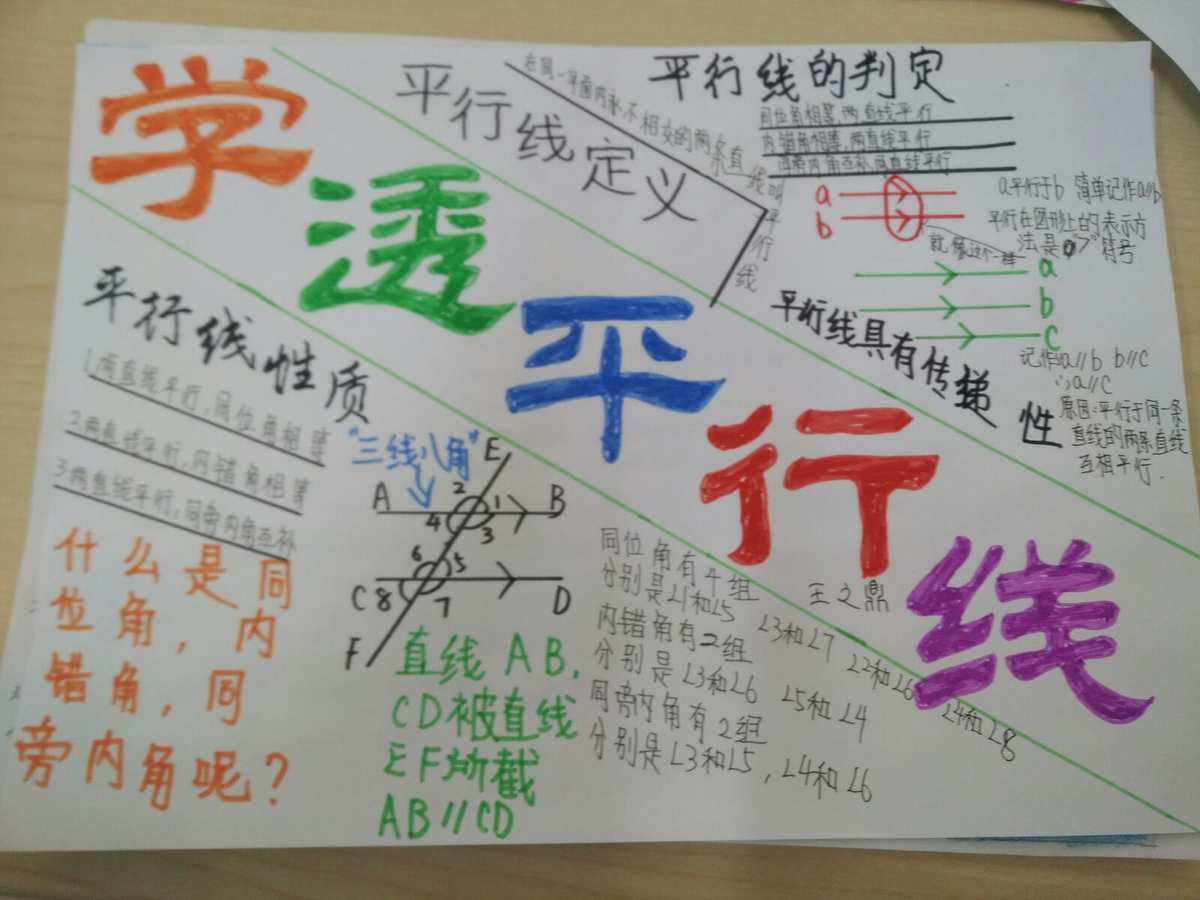 学透平行线
平行线定义
在同一平面内,不相交的两条直线叫平行线
平行线的判定
同位角相等,两直线平行
内错角相等,两直线平行
同旁内角互补,两直线平行
a
b
a平行于b 简单记作a∥b
平行在图形上的表示方
法是">"符号
就像这个一样
a
b
c
平行线具有传递性
记作∵a∥b b∥c
∴a∥c
原因:平行于同一条
直线的两条直线
互相平行.
平行线性质
1.两直线平行,同位角相等
2.两直线平行,内错角相等
3.两直线平行,同旁内角互补
什么是同
位角,内
错角,同
旁内角呢?
"三线八角"
E
A 2 1 B
4 3
6 5
C 8 7 D
F
直线AB,
CD被直线
EF所截
AB∥CD
同位角有4组
分别是∠1和∠5 ∠3和∠7 ∠2和∠6 ∠4和∠8
内错角有2组
分别是∠3和∠6 ∠5和∠4
同旁内角有2组
分别是∠3和∠5,∠4和∠6
王之鼎